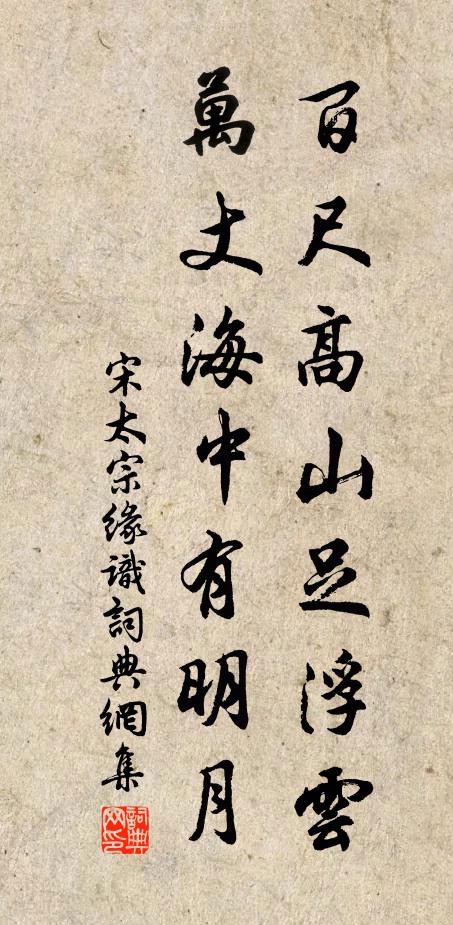 百尺高山足浮雲
萬丈海中有明月
宋太宗緣識詞典網集
詞典网印